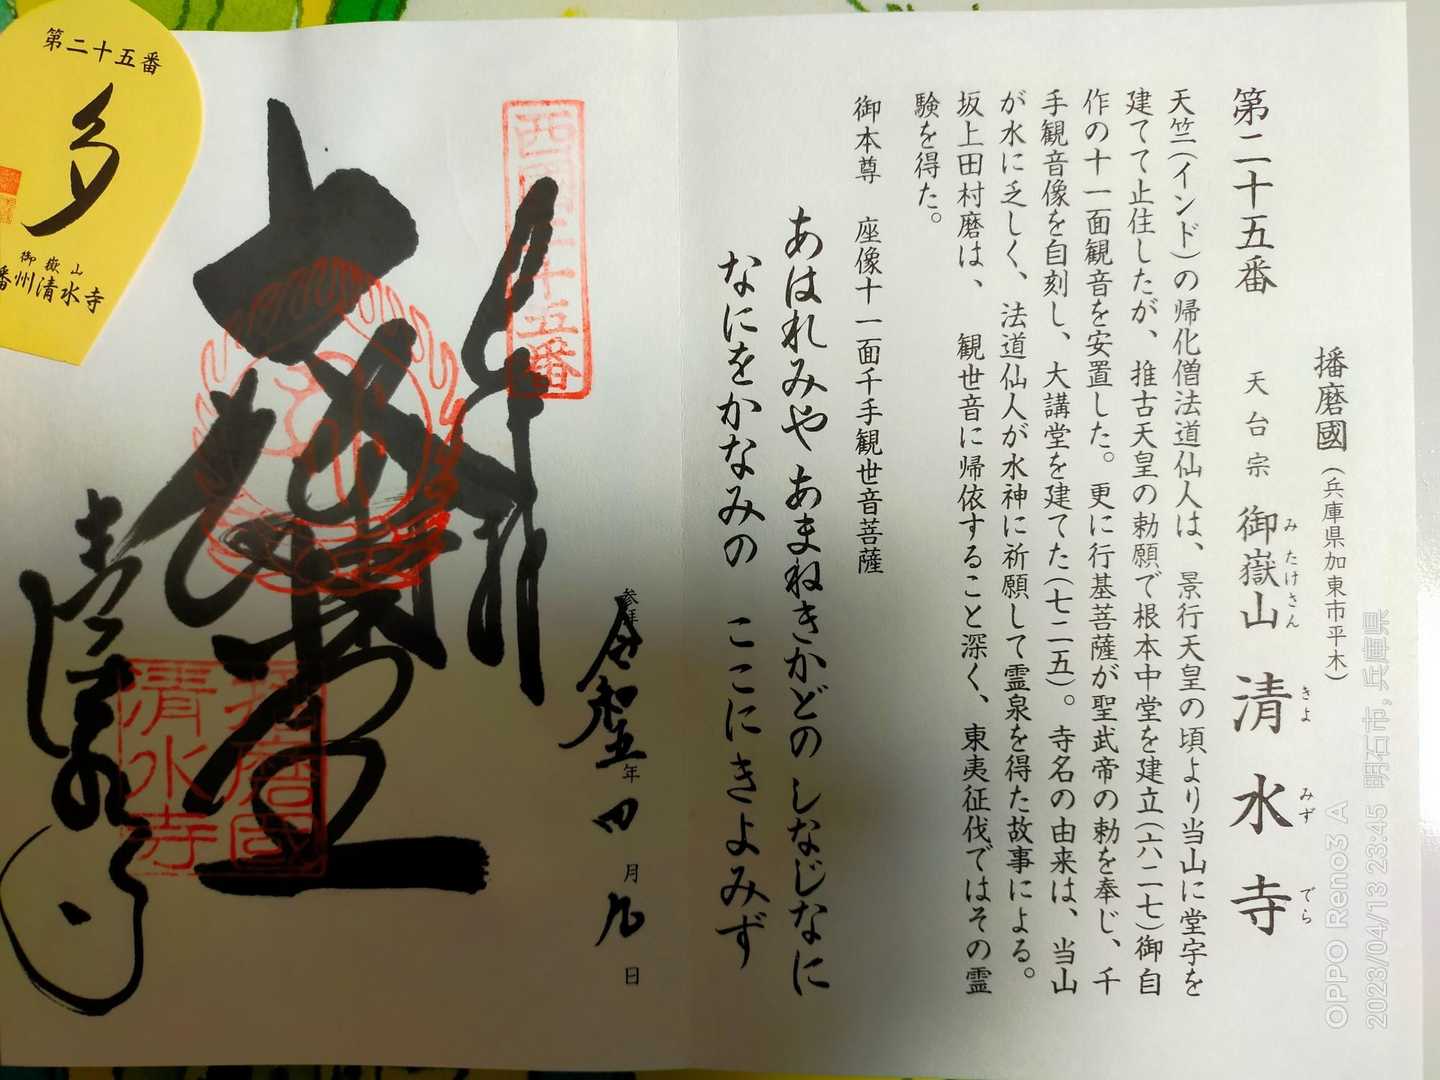 播磨國(兵庫県加東市平木)
第二十五番 天台宗 御嶽山 清水寺
みたけさん きよ みず でら
天竺(インド)の帰化僧法道仙人は、景行天皇の頃より当山に堂宇を
建てて止住したが、推古天皇の勅願で根本中堂を建立(六二七)御自
作の十一面観音を安置した。更に行基菩薩が聖武帝の勅を奉じ、千
手観音像を自刻し、大講堂を建てた(七二五)。寺名の由来は、当山
が水に乏しく、法道仙人が水神に祈願して霊泉を得た故事による。
坂上田村磨は、観世音に帰依すること深く、東夷征伐ではその霊
験を得た。
御本尊 座像十一面千手観世音菩薩
あはれみや あまねきかどの しなじなに
なにをかなみの ここにきよみず
参拝 令和五年四月九日
西國二十五番
奉拝
大講堂
播磨國
清水寺
清水寺
第二十五番
多
御嶽山
播州清水寺
OPPO Reno3 A
2023/04/13 23:45 明石市, 兵庫県